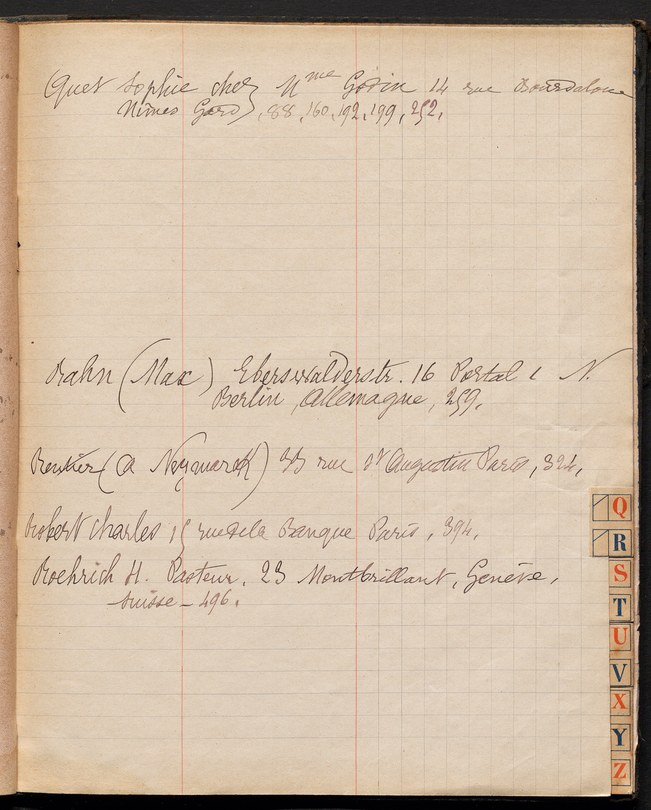 Quet Sophie chez Mme Godin 14 rue Bourdaloue
Nîmes Gard), 88, 160, 192, 199, 252.
Rahn (Max) Eberswalderstr. 16 Portal 1 N.
Berlin, Allemagne, 259.
Rentier (A Neymarck) 33 rue St Augustin Paris, 324,
Robert Charles 15 rue de la Banque Paris, 394.
Roehrich H. Pasteur, 23 Montbrillant, Genève,
Suisse - 496.
Q
R
S
T
U
V
X
Y
Z